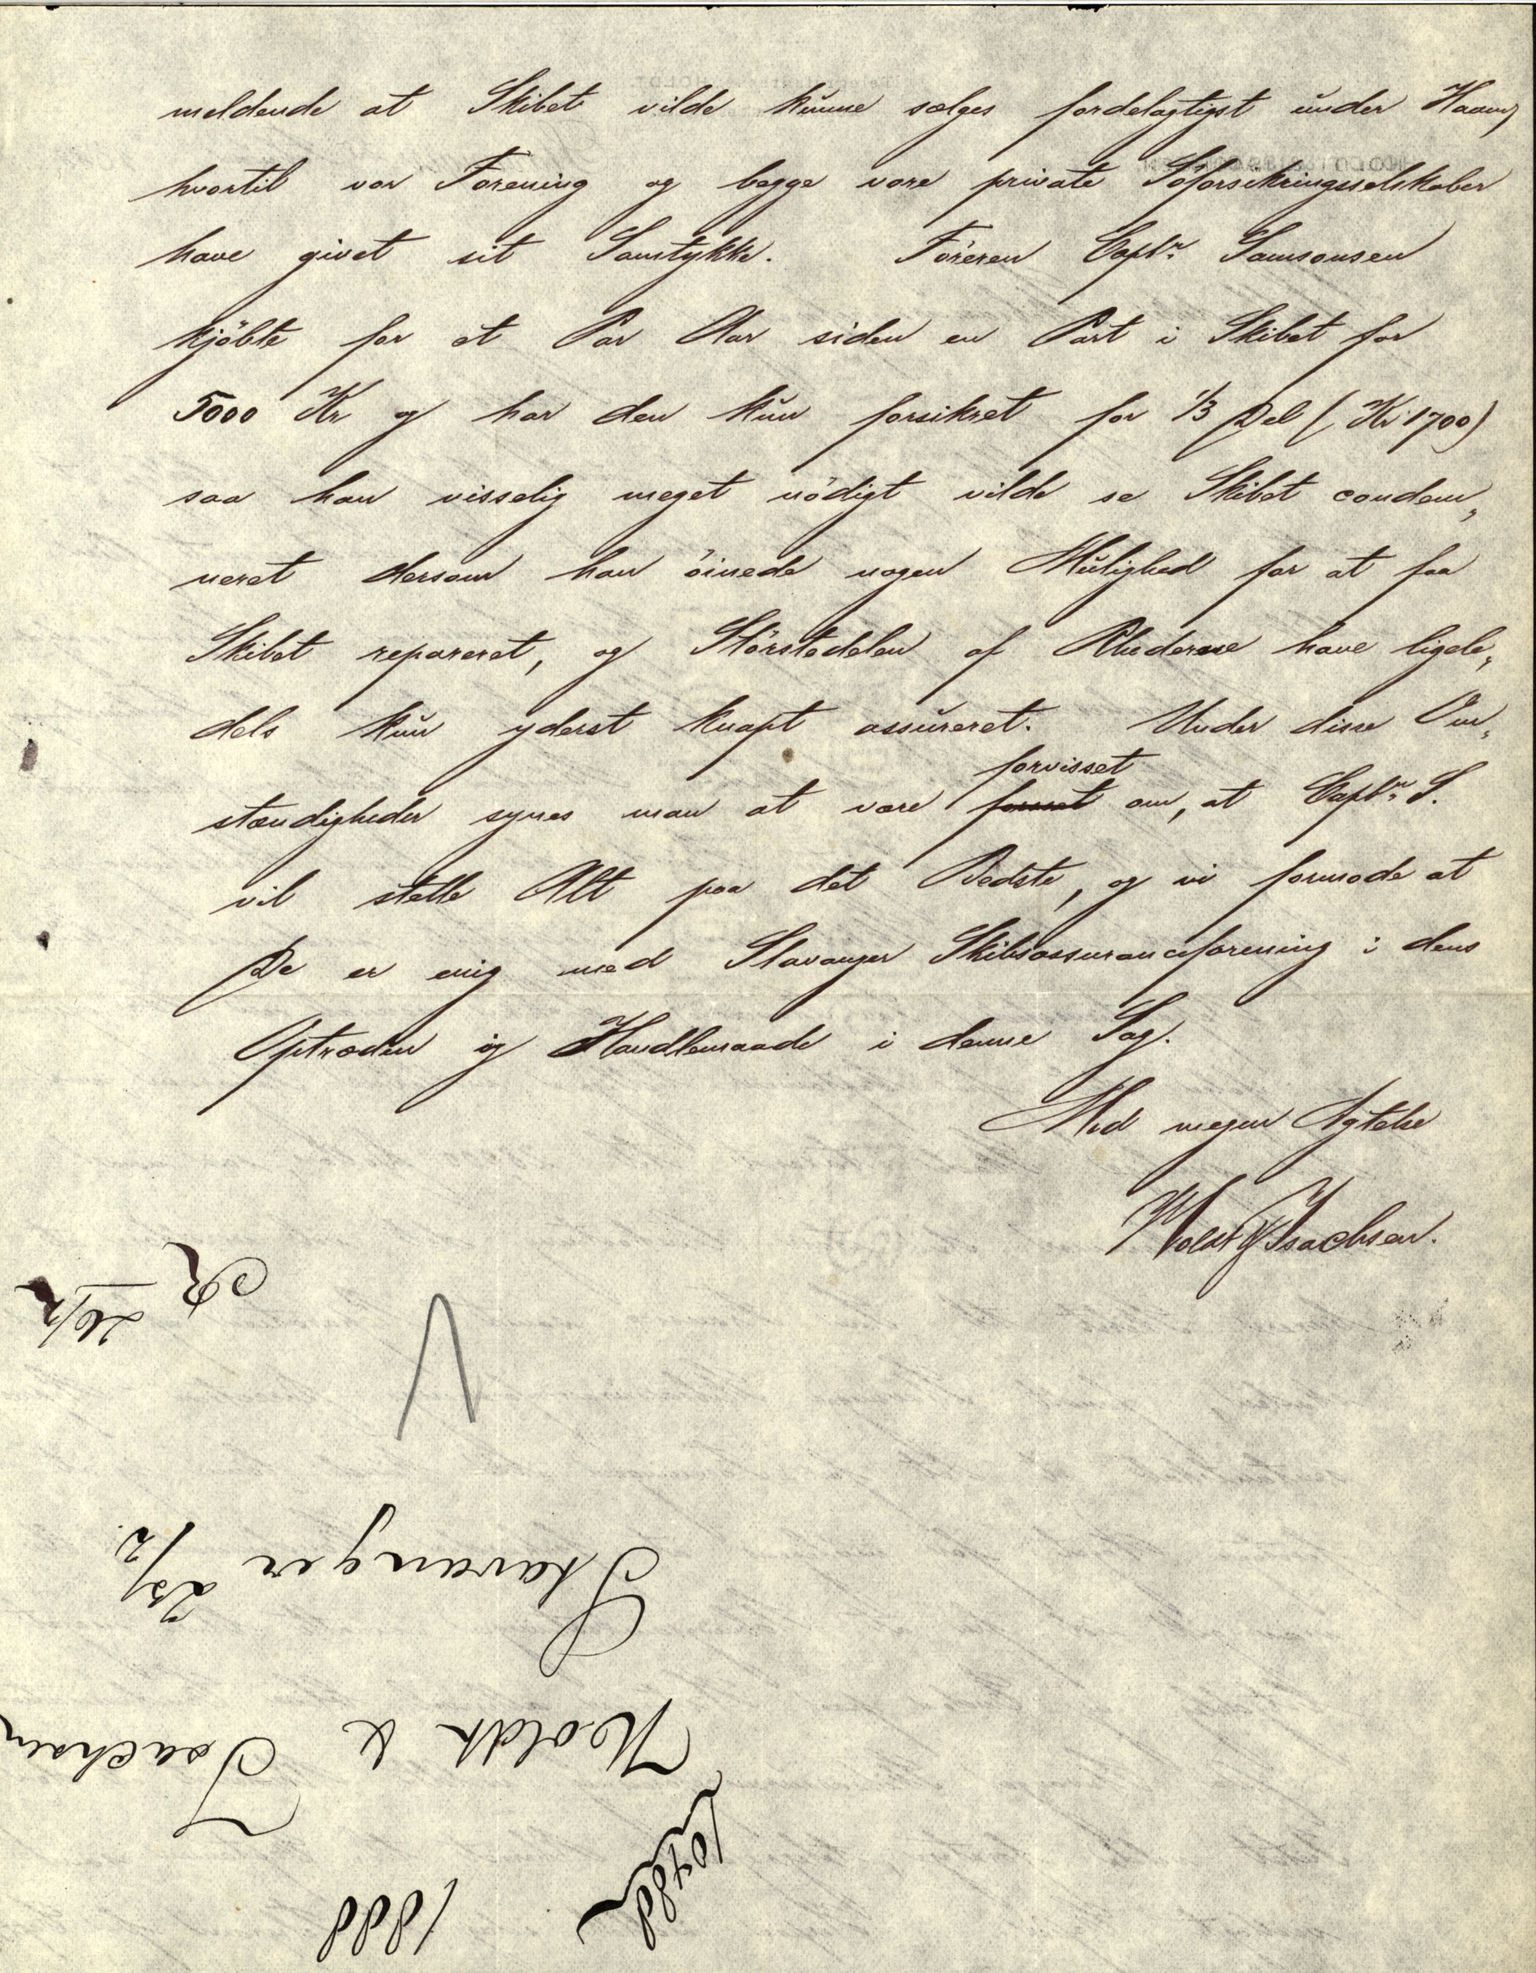 meldende at Skibet vilde kunne sælges fordelagtigst under Haanden
hvortil vor Forening og begge vore private Söforsikringsselskaber
have givet sit Samtykke. Föreren Captn Samsonsen
kjöbte for et Par Aar siden en Part i Skibet for
5000 Kr og har den kun forsikret for 1/3 Del (Kr 1700)
saa han visselig meget nödigt vilde se Skibet condem„
neret dersom han öinede nogen Mulighed for at faa
Skibet repareret, og Störstedelen af Rhederne have ligele„
dels kun yderst knapt assureret. Under disse Om„
forvisset
stændigheder synes man at være om, at Captn S.
vil stelle Alt paa det Bedste, og vi formode at
De er enig med Stavanger Skibsassuranceforening i dens
Optræden og Handlemaade i denne Sag.
Med megen Agtelse
Holdt & Isachsen.
R 26/2
Stavanger 23/2
Holdt & Isachsen
1888